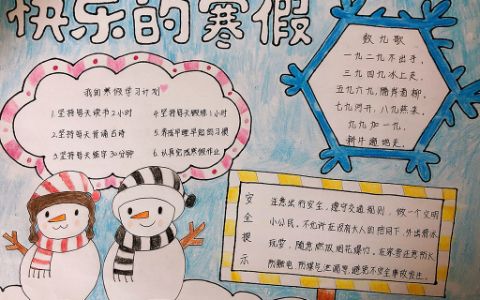 快乐的寒假
我的寒假学习计划
1.坚持每天读书2小时
2.坚持每天背诵古诗
3.坚持每天练字30分钟
4.坚持每天锻炼1小时
5.养成早睡早起的习惯
6.认真完成寒假作业
数九歌
一九二九不出手,
三九四九冰上走,
五九六九,隔岸看柳,
七九河开,八九燕来,
九九加一九,
遍地走。
安全提示
注意出行安全,遵守交通规则,做一个文明
小公民。不允许在没有大人的陪同下,外出滑冰
玩雪,随意燃放烟花爆竹。在家要注意防火
防触电,防煤气泄漏等,避免不安全事故发生。